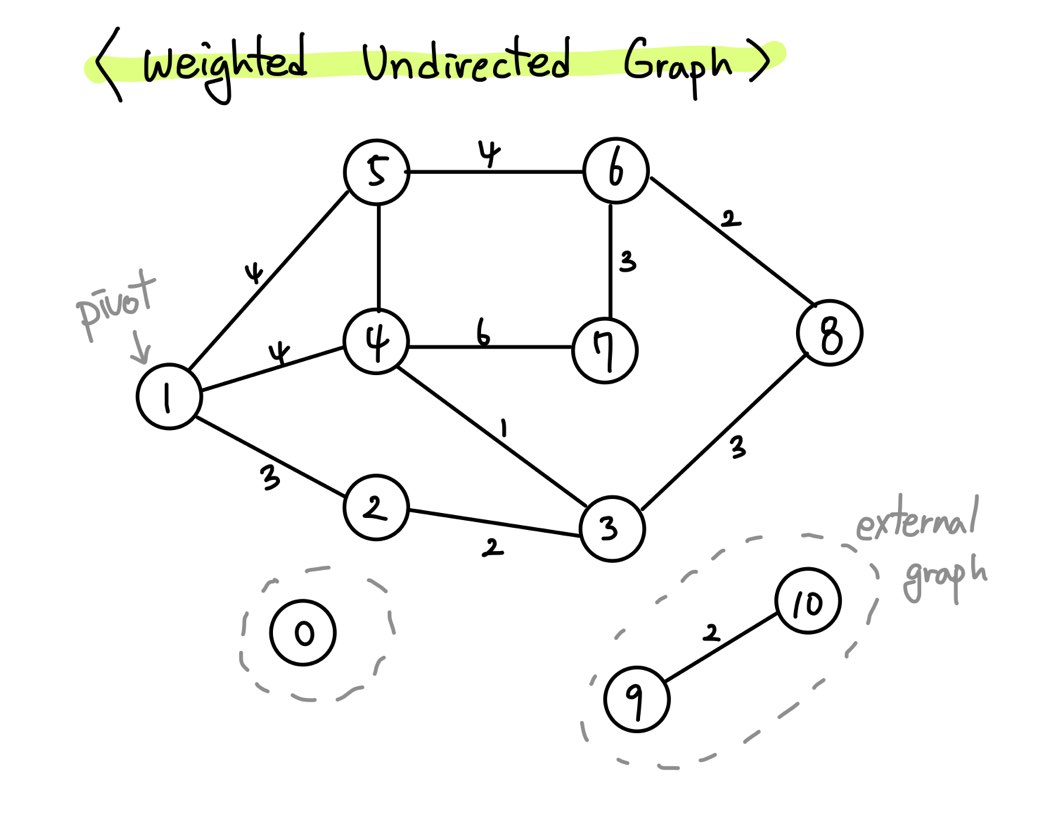 < Weighted Undirected Graph >
4
5
6
2
4
3
pivot
4
6
4
7
8
1
1
3
3
2
3
2
external
graph
10
0
2
9